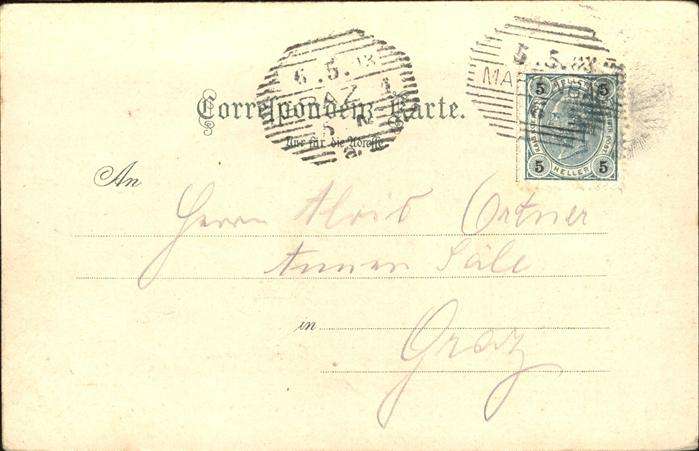 6.5.03
5.5.03
Correspondenz-Karte.
Nur für die Adresse
5 HELLER 5
5 HELLER 5
An
Herrn Alois Ortner
Annen Säle
in
Graz